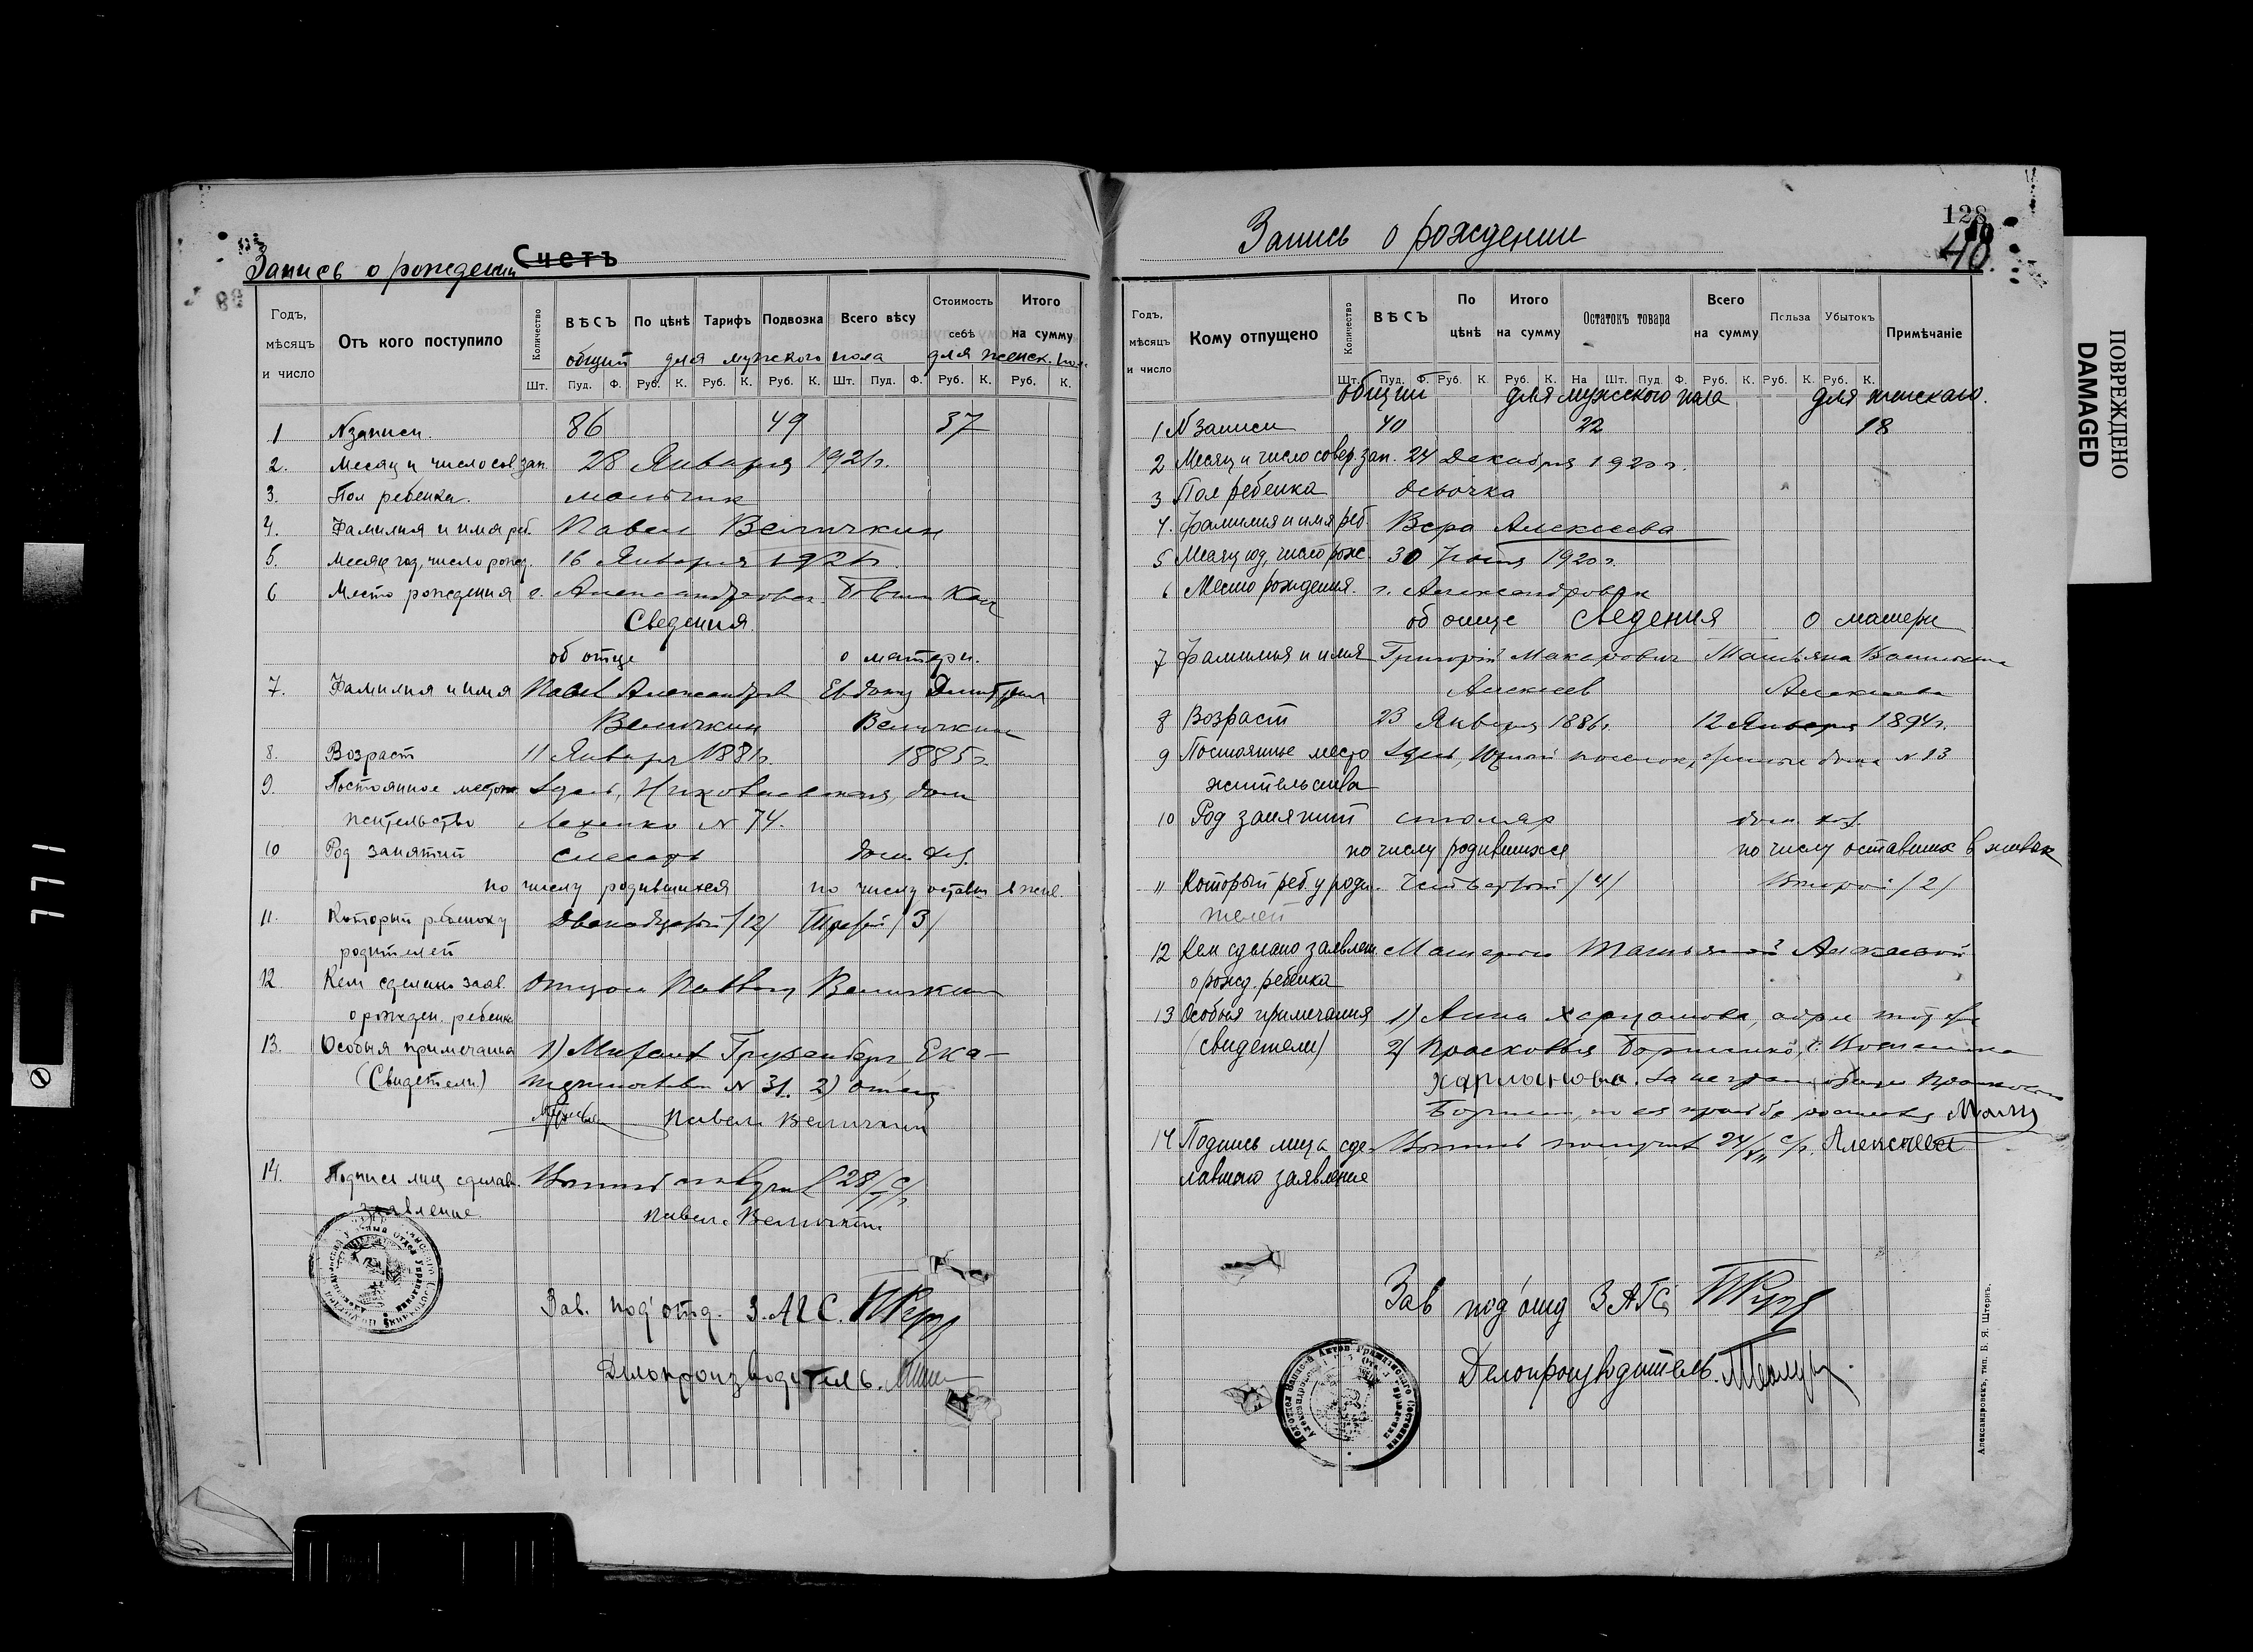 Запись о рождении Счетъ
Годъ, мѣсяцъ и число
Отъ кого поступило
Количество
ВѢСЪ
По цѣнѣ
Тарифъ
Подвозка
Всего вѣсу
Стоимость себѣ
Итого на сумму
общий для мужского пола для женск. пол.
Шт. Пуд. Ф. Руб. К. Руб. К. Руб. К. Шт. Пуд. Ф. Руб. К. Руб. К.
1 N записи. 86 49 37
2. Месяц и число сов зап. 28 Января 1921 г.
3. Пол ребенка. мальчик
4. Фамилия и имя реб. Павел Величкин
5. Месяц год, число рожд. 16 Января 1921 г.
6 Место рождения г. Александровск.
Сведения
об отце о матери.
7. Фамилия и имя Павел Александров Евдокия
Величкин Величкин
8. Возраст 11 Января 1881 г. 1885 г.
9. Постоянное местож. Здесь, Николаевская, дом
жительство N 74.
10 Род занятий слесарь дом. хоз.
по числу родившихся по числу остав. в жив
11. Который ребенок у Двенадцатый /12/ Третий /3/
родителей
12. Кем сделано заяв. Отцом Павлом Величкин
о рожден. ребенка
13. Особыя примечания 1) Грузенберг Ека-
(Свидетели) N 31. 2) отец
Павел Величкин
14. Подписи лиц сделав. 28/I с/г
заявление Павел. Величкин
Зав. под'отд. З.АГС.
Делопроизводитель.
Запись о рождении
128
40.
Годъ, мѣсяцъ и число
Кому отпущено
Количество
ВѢСЪ
По цѣнѣ
Итого на сумму
Остатокъ товара
Всего на сумму
Польза
Убытокъ
Примѣчаніе
Шт. Пуд. Ф. Руб. К. Руб. К. На Шт. Пуд. Ф. Руб. К. Руб. К. Руб. К.
общий для мужского пола для женскаго.
1 N Записи 40 22 18
2 Месяц и число совер. зап. 24 Декабря 1920 г.
3 Пол ребенка Девочка
4. Фамилия и имя реб. Вера Алексеева
5 Месяц год, число рож. 30 1920 г.
6 Место рождения. г. Александровск
об отце Сведения о матери
7 Фамилия и имя Григорий Макарович Татьяна
Алексеев Алексеева
8 Возраст 23 Января 1886 г. 12 Января 1894 г.
9 Постоянное место Здесь, Южный поселок, дома N 13
жительства
10 Род занятий столяр дом. хоз.
по числу родившихся по числу оставших в живых
11 Который реб у роди- Четвертый /4/ Второй /2/
телей
12 Кем сделано заявлен. Матерью Татьяной Алексеевой
о рожд. ребенка
13 Особыя примечания 1) Анна Харламова,
(свидетели) 2) Прасковья
Харламова. За неграм
14 Подпись лица сде- 24/XII с/г. Алексеева
лавшаго заявление
Зав под'отд ЗАГС
Делопроизводитель.
Александровскъ, тип. Б. Я. Штернъ.
ПОВРЕЖДЕНО
DAMAGED
771